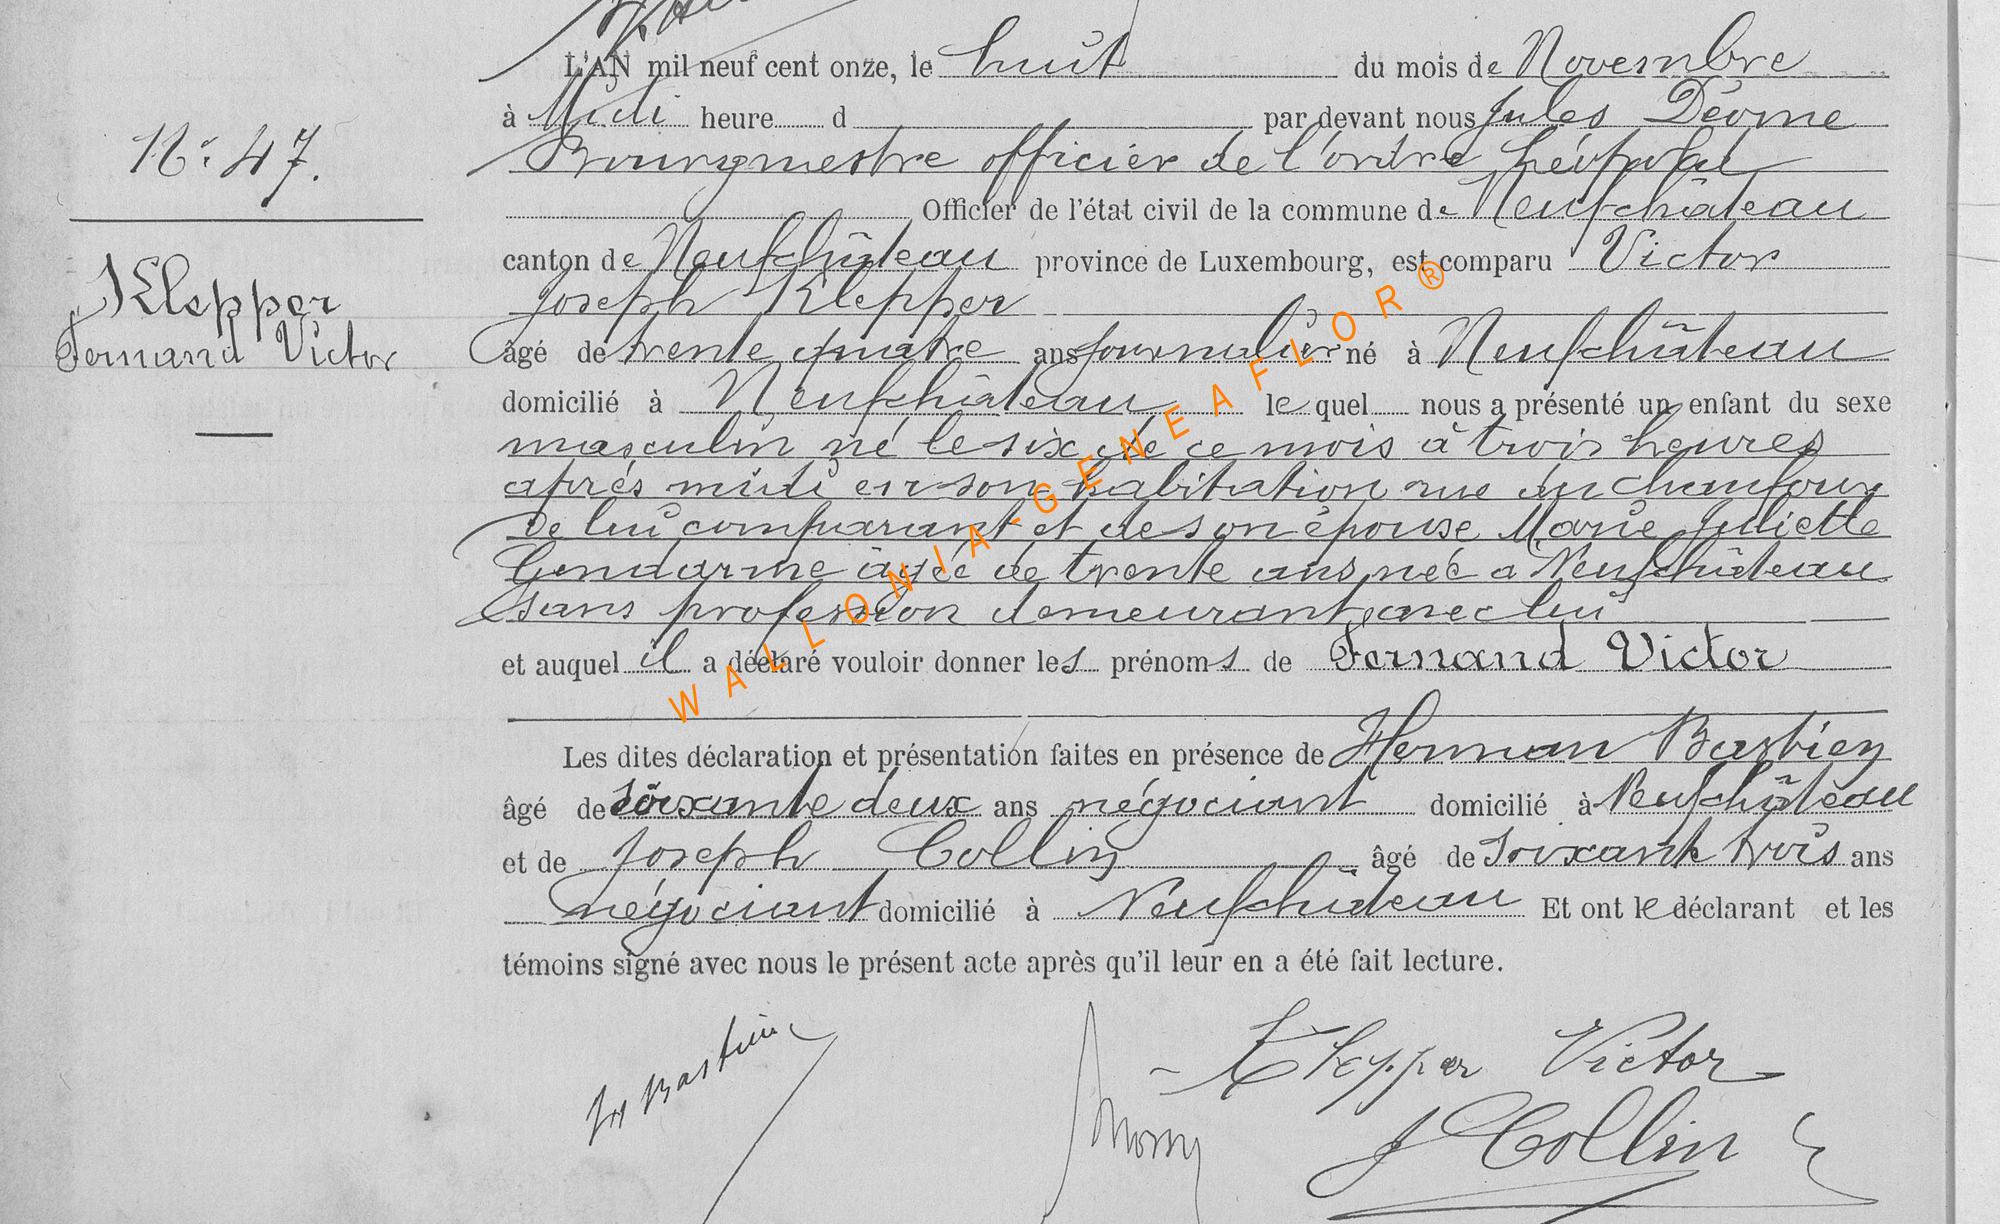 L'AN mil neuf cent onze, le huit du mois de Novembre
à Midi heure d par devant nous Jules Déome
N° 47.
Bourgmestre officier de l'ordre Léopold
Officier de l'état civil de la commune de Neufchâteau
canton de Neufchâteau province de Luxembourg, est comparu Victor
Klepper
Joseph Klepper
Fernand Victor
âgé de trente quatre ans journalier né à Neufchâteau
domicilié à Neufchâteau lequel nous a présenté un enfant du sexe
masculin né le six de ce mois à trois heures
après midi en son habitation rue du Chaufour
de lui comparant et de son épouse Marie Juliette
Gendarme âgée de trente ans, née à Neufchâteau
sans profession demeurant avec lui
et auquel il a déclaré vouloir donner les prénoms de Fernand Victor
WALLONIA-GENEAFLOR®
Les dites déclaration et présentation faites en présence de Herman Bastien
âgé de soixante deux ans négociant domicilié à Neufchâteau
et de Joseph Collin âgé de soixante trois ans
négociant domicilié à Neufchâteau Et ont le déclarant et les
témoins signé avec nous le présent acte après qu'il leur en a été fait lecture.
H Bastien
Klepper Victor
J Collin